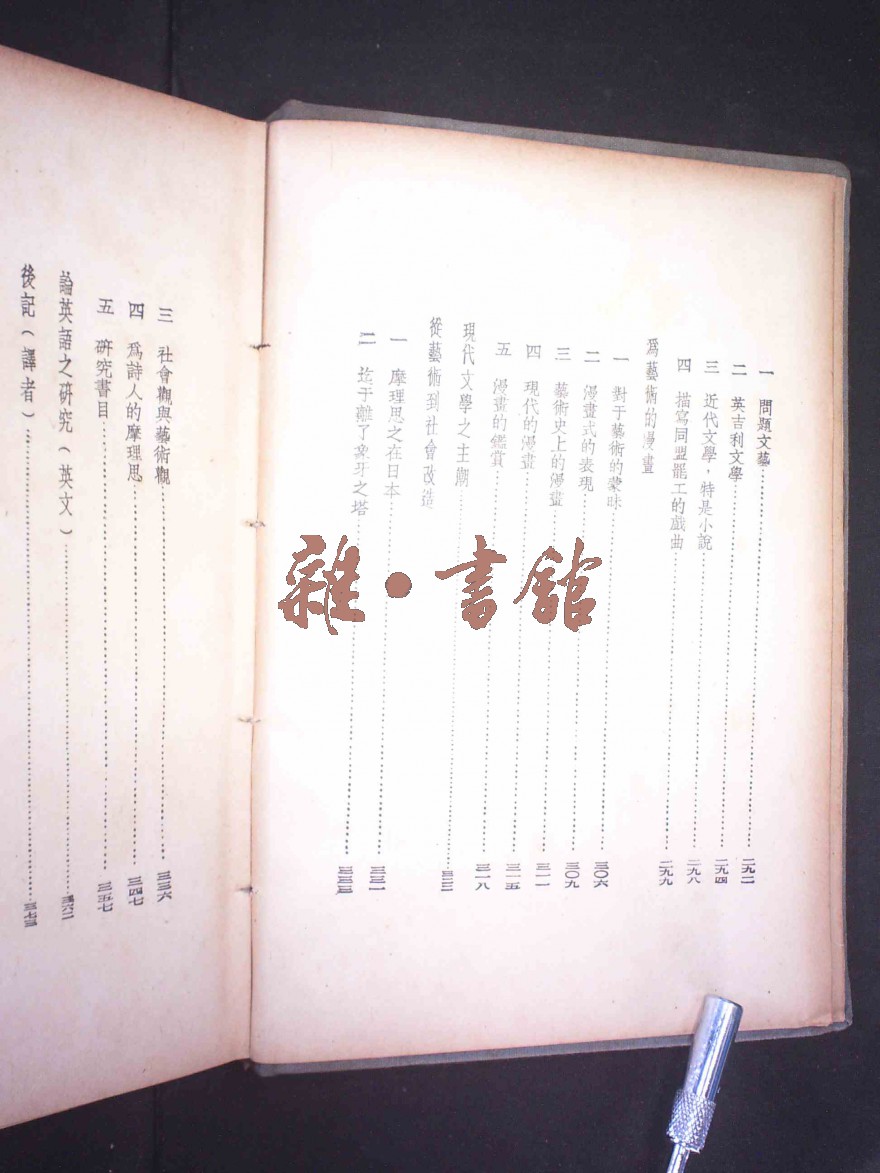 一　問題文藝……二九二
二　英吉利文學……二九四
三　近代文學，特是小說……二九八
四　描寫同盟罷工的戲曲……二九九
為藝術的漫畫
一　對于藝術的蒙昧……三〇六
二　漫畫式的表現……三〇九
三　藝術史上的漫畫……三一一
四　現代的漫畫……三一五
五　漫畫的鑑賞……三一八
現代文學之主潮……三二二
從藝術到社會改造
一　摩理思之在日本……三三一
二　迄于離了象牙之塔……三三三
三　社會觀與藝術觀……三三六
四　為詩人的摩理思……三四七
五　研究書目……三五七
論英語之研究（英文）……三六二
後記（譯者）……三七三
雜·書館